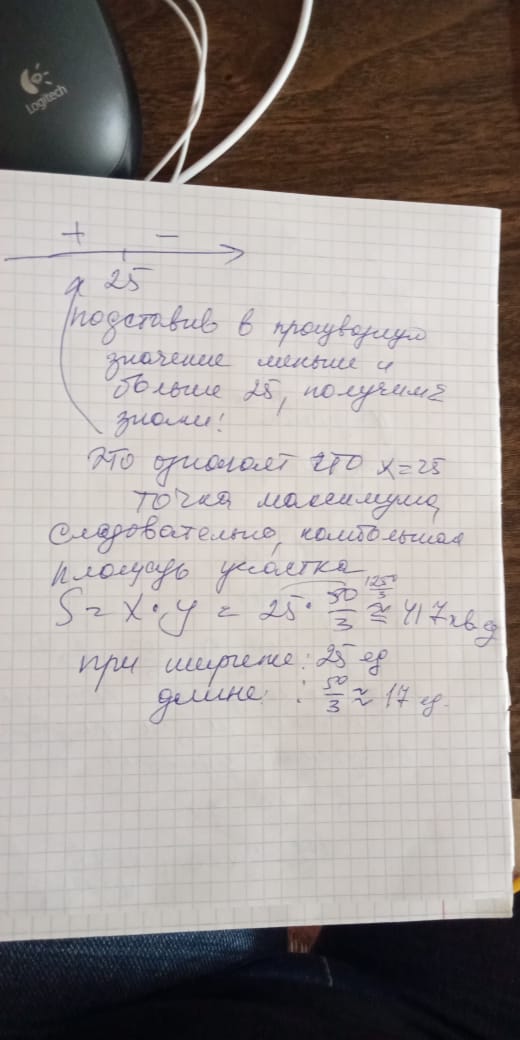 Logitech
+ −
x 25
подставив в производную
значение меньше и
больше 25, получим
знаки!
Это означает что x=25
точка максимума,
следовательно, наибольшая
площадь участка
S = x · y = 25 · 50/3 = 1250/3 ≈ 417 кв.ед
при ширине: 25 ед
длине: 50/3 ≈ 17 ед.